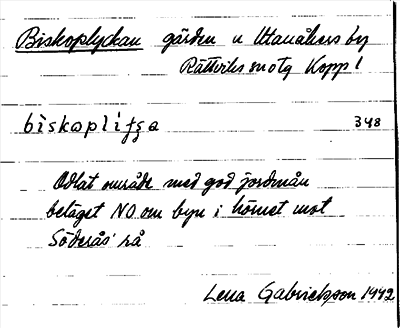 Biskoplyckan gärden u Utanåkers by
Rättviks sn otg Kopp l
biskoplifsa 348
Odlat område med god jordmån
beläget NO om byn i hörnet mot
Söderås rå
Lena Gabrielsson 1942